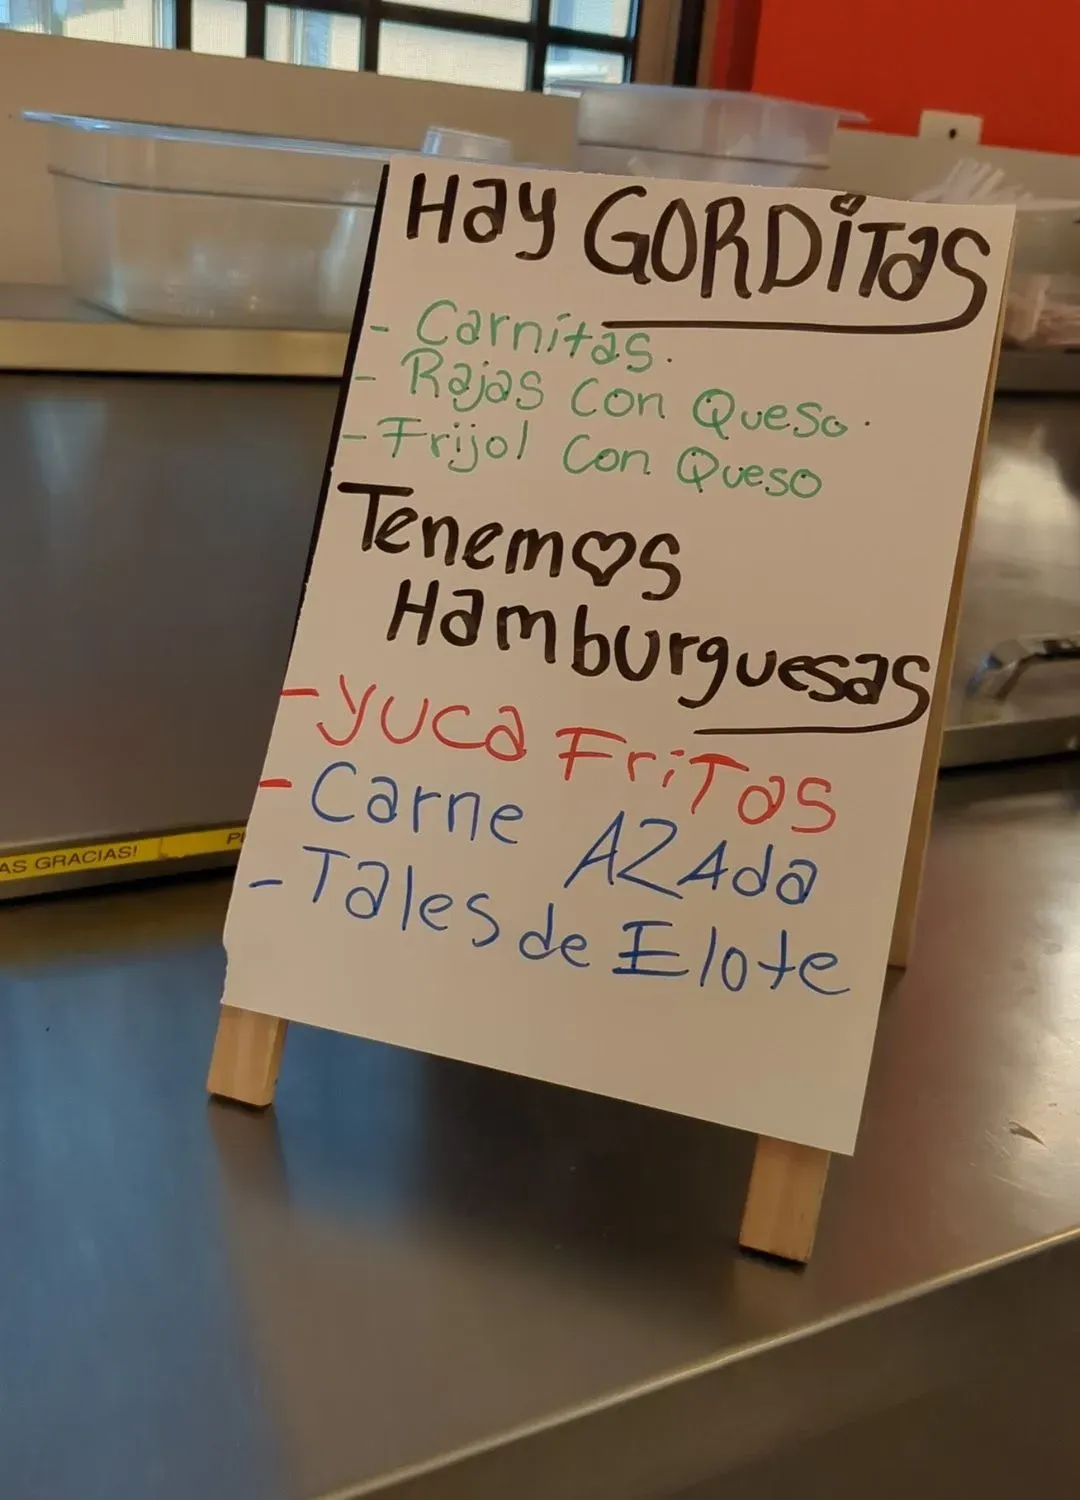 Hay GORDiTas
- Carnitas.
- Rajas Con Queso.
- Frijol Con Queso
Tenemos
Hamburguesas
- YUCa FriTas
- Carne AZAda
- Tales de Elote
AS GRACIAS!